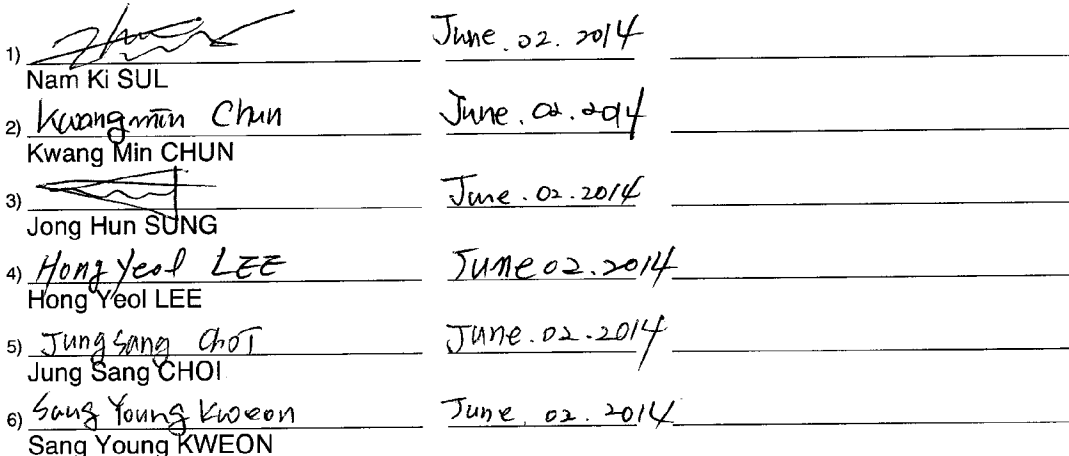 1) June. 02. 2014
Nam Ki SUL
2) Kwangmin Chun June. 02. 2014
Kwang Min CHUN
3) June. 02. 2014
Jong Hun SUNG
4) Hong Yeol LEE June 02. 2014
Hong Yeol LEE
5) Jung Sang CHOI June. 02. 2014
Jung Sang CHOI
6) Sang Young Kweon June. 02. 2014
Sang Young KWEON